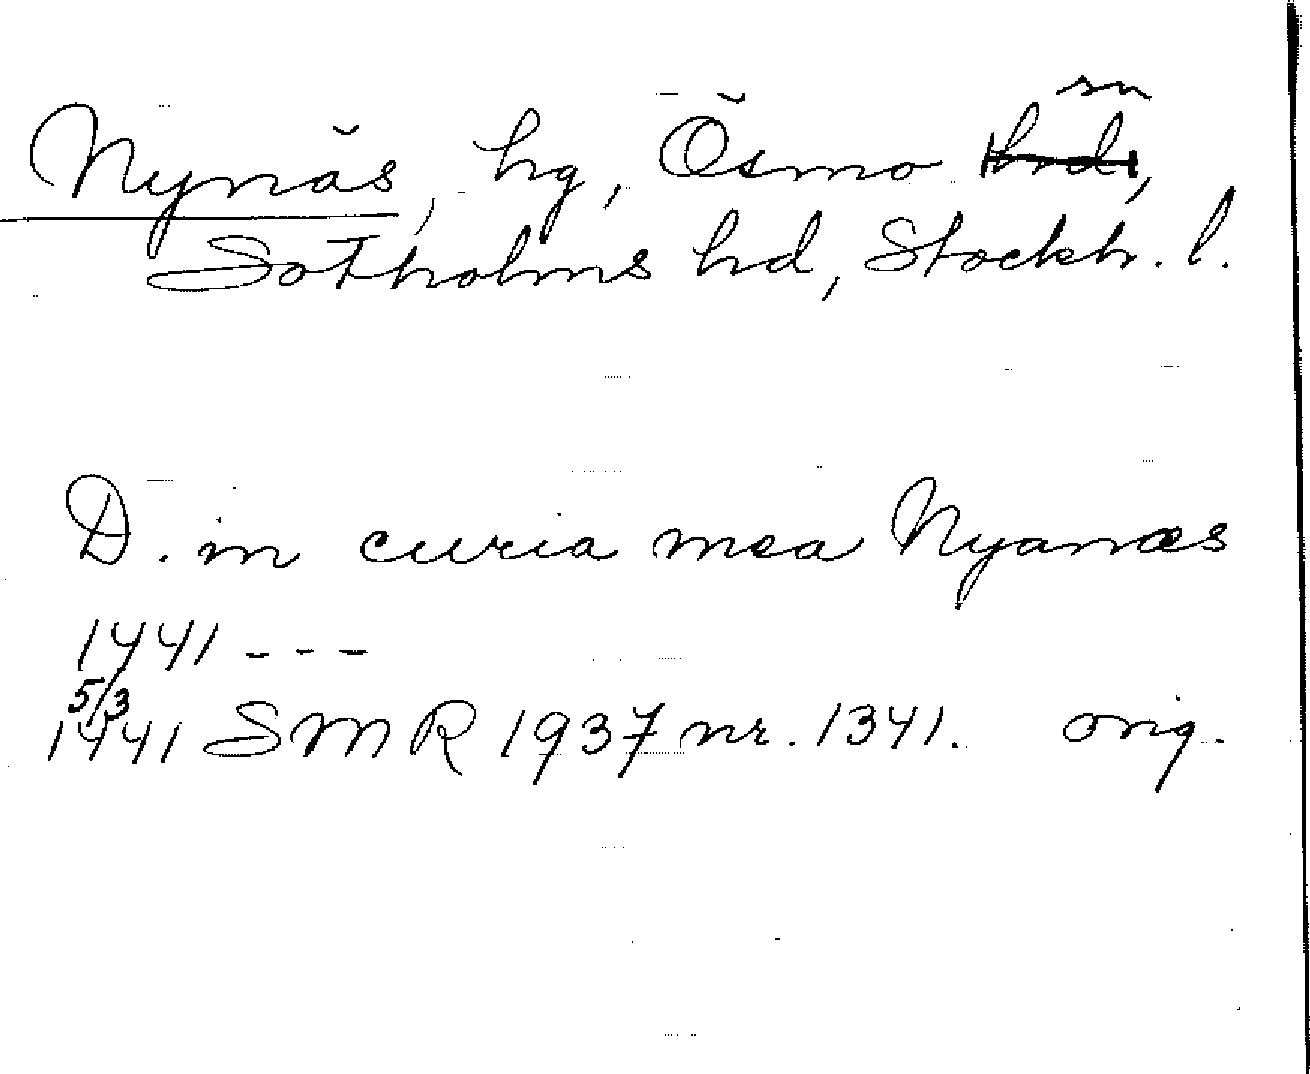 Nynäs, hg, Ösmo sn,
Sotholms hd, Stockh. l.
D. in curia mea Nyanæs
1441 - - -
5/3
1441 SMR 1937 nr. 1341. orig.